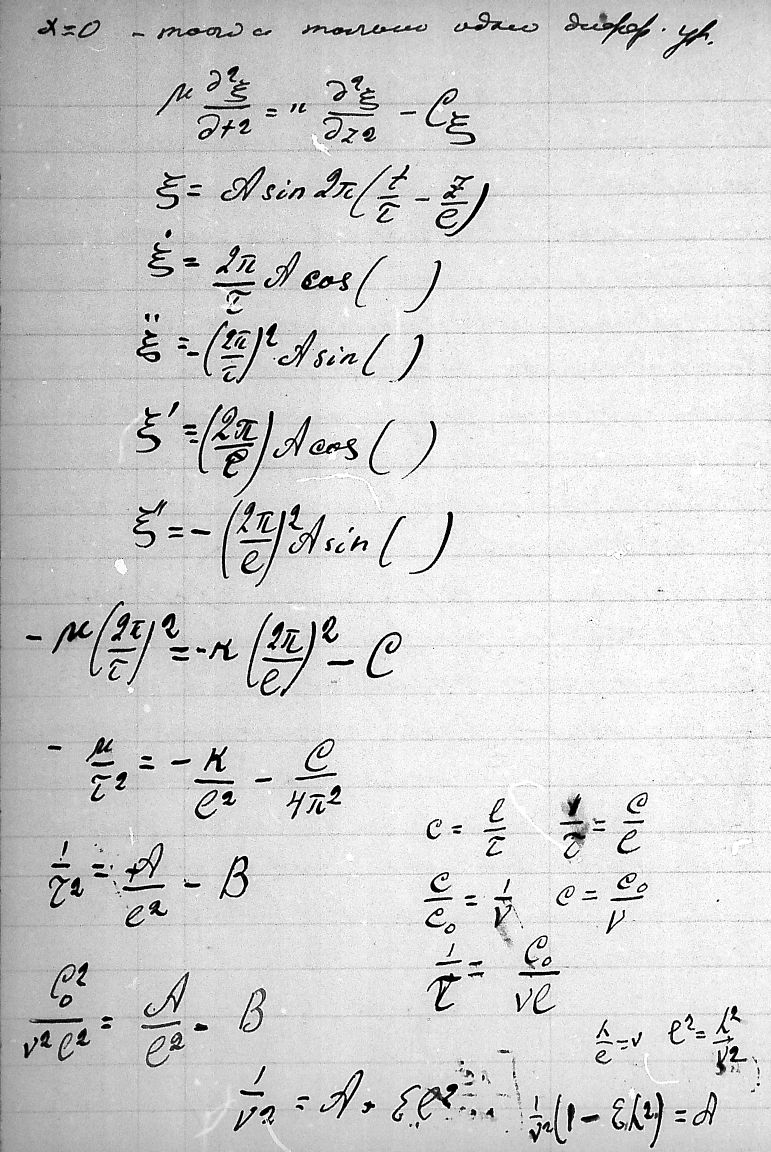 x=0 - только одно дифф. ур.
μ ∂²ξ/∂t2 = κ ∂²ξ/∂z2 - Cξ
ξ = A sin 2π(t/τ - z/l)
ξ̇ = 2π/τ A cos( )
ξ̈ = -(2π/τ)² A sin( )
ξ' = (2π/l) A cos( )
ξ'' = -(2π/l)² A sin( )
- μ(2π/τ)² = -κ(2π/l)² - C
- μ/τ2 = - κ/l2 - C/4π2
c = l/τ 1/τ = c/l
1/τ2 = A/l2 - B
c/c₀ = 1/ν c = c₀/ν
1/τ = c₀/νl
c₀²/ν²l² = A/l2 - B
λ/l = ν l² = λ²/ν2
1/ν2 = A + εl²
1/ν2(1 - ελ²) = A